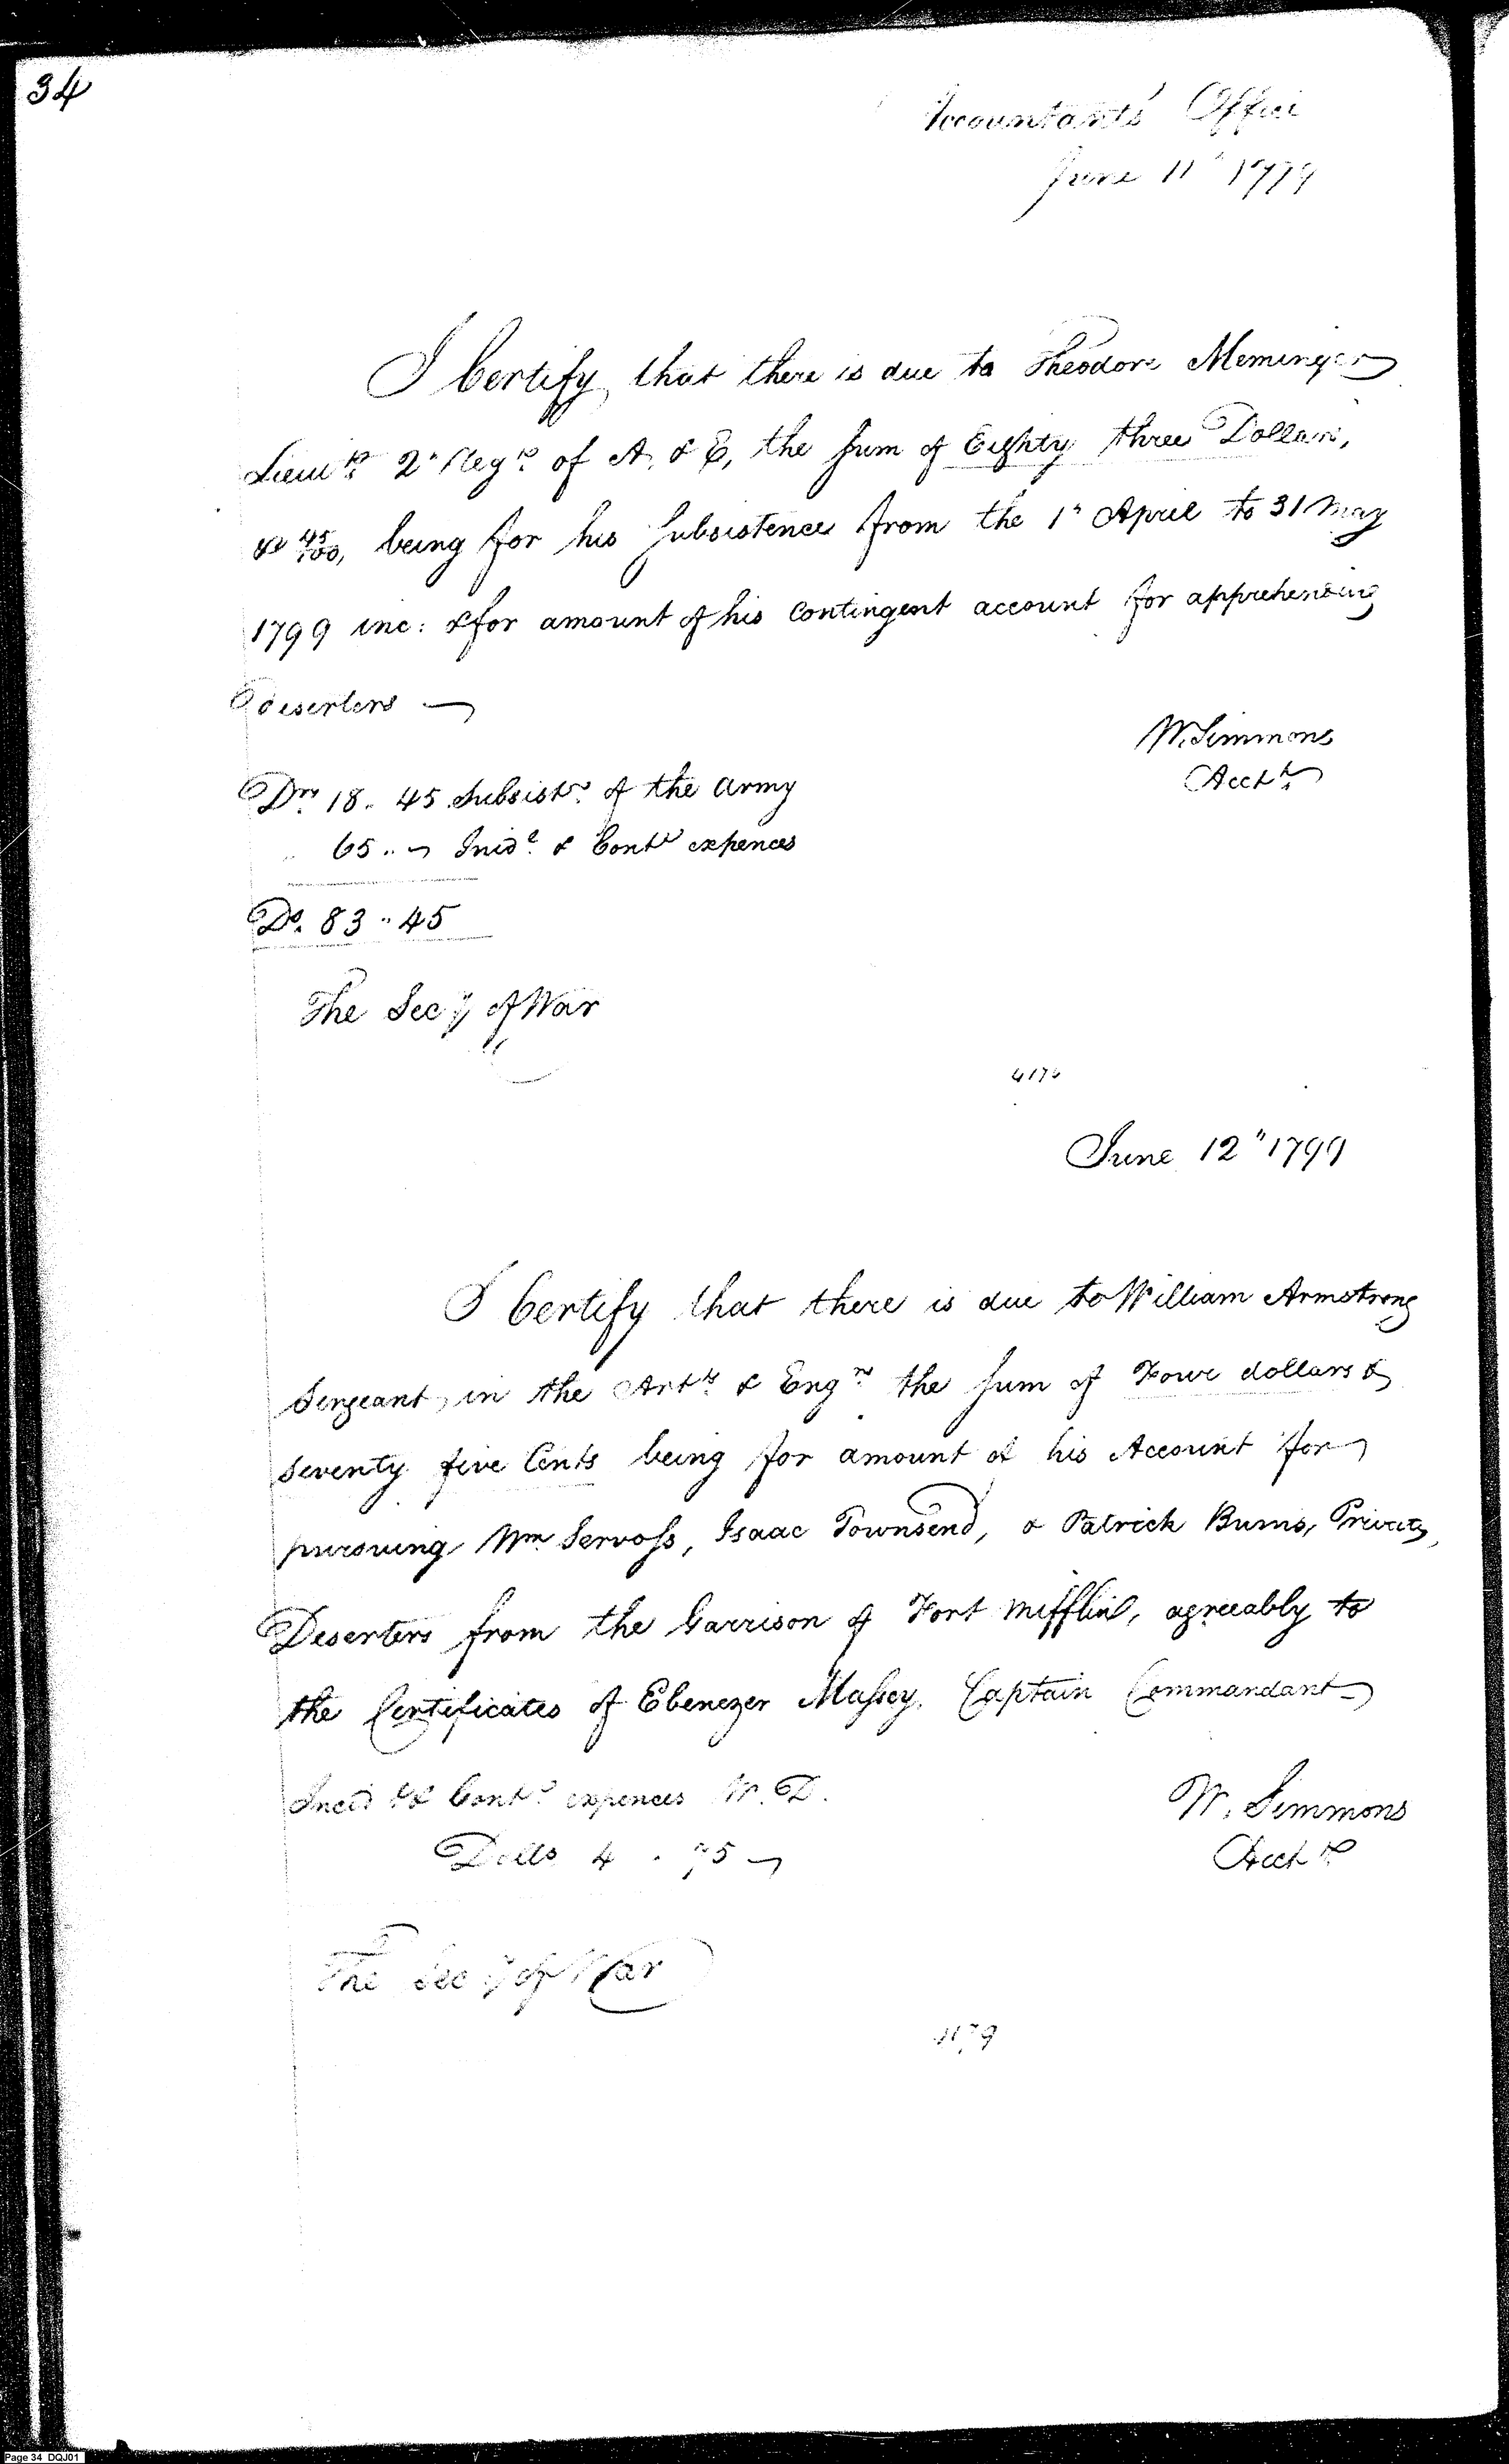 34
Accountants' Office
June 11" 1799
I Certify that there is due to Theodore Meminger
Lieut. 2" Regt. of A. & E, the Sum of Eighty three Dollars,
& 45/100, being for his Subsistence from the 1" April to 31 May
1799 inc: & for amount of his Contingent account for apprehending
deserters
W. Simmons
Acctt.
Drs. 18. 45 Subsistce. of the Army
65.. Inidl. & Contt expences
Ds. 83 " 45
The Secy of War
June 12" 1799
I Certify that there is due to William Armstrong
Sergeant in the Arty. & Engrs. the Sum of Four dollars &
Seventy five Cents being for amount of his Account for
pursuing Wm. Servoss, Isaac Townsend, & Patrick Burns, Privates,
Deserters from the Garrison of Fort Mifflin, agreeably to
the Certificates of Ebenezer Massey, Captain Commandant
Incidt & Contt. expences W. D.
Dolls 4 . 75
W. Simmons
Acctt.
The Secy of War
4179
Page 34 DQJ01